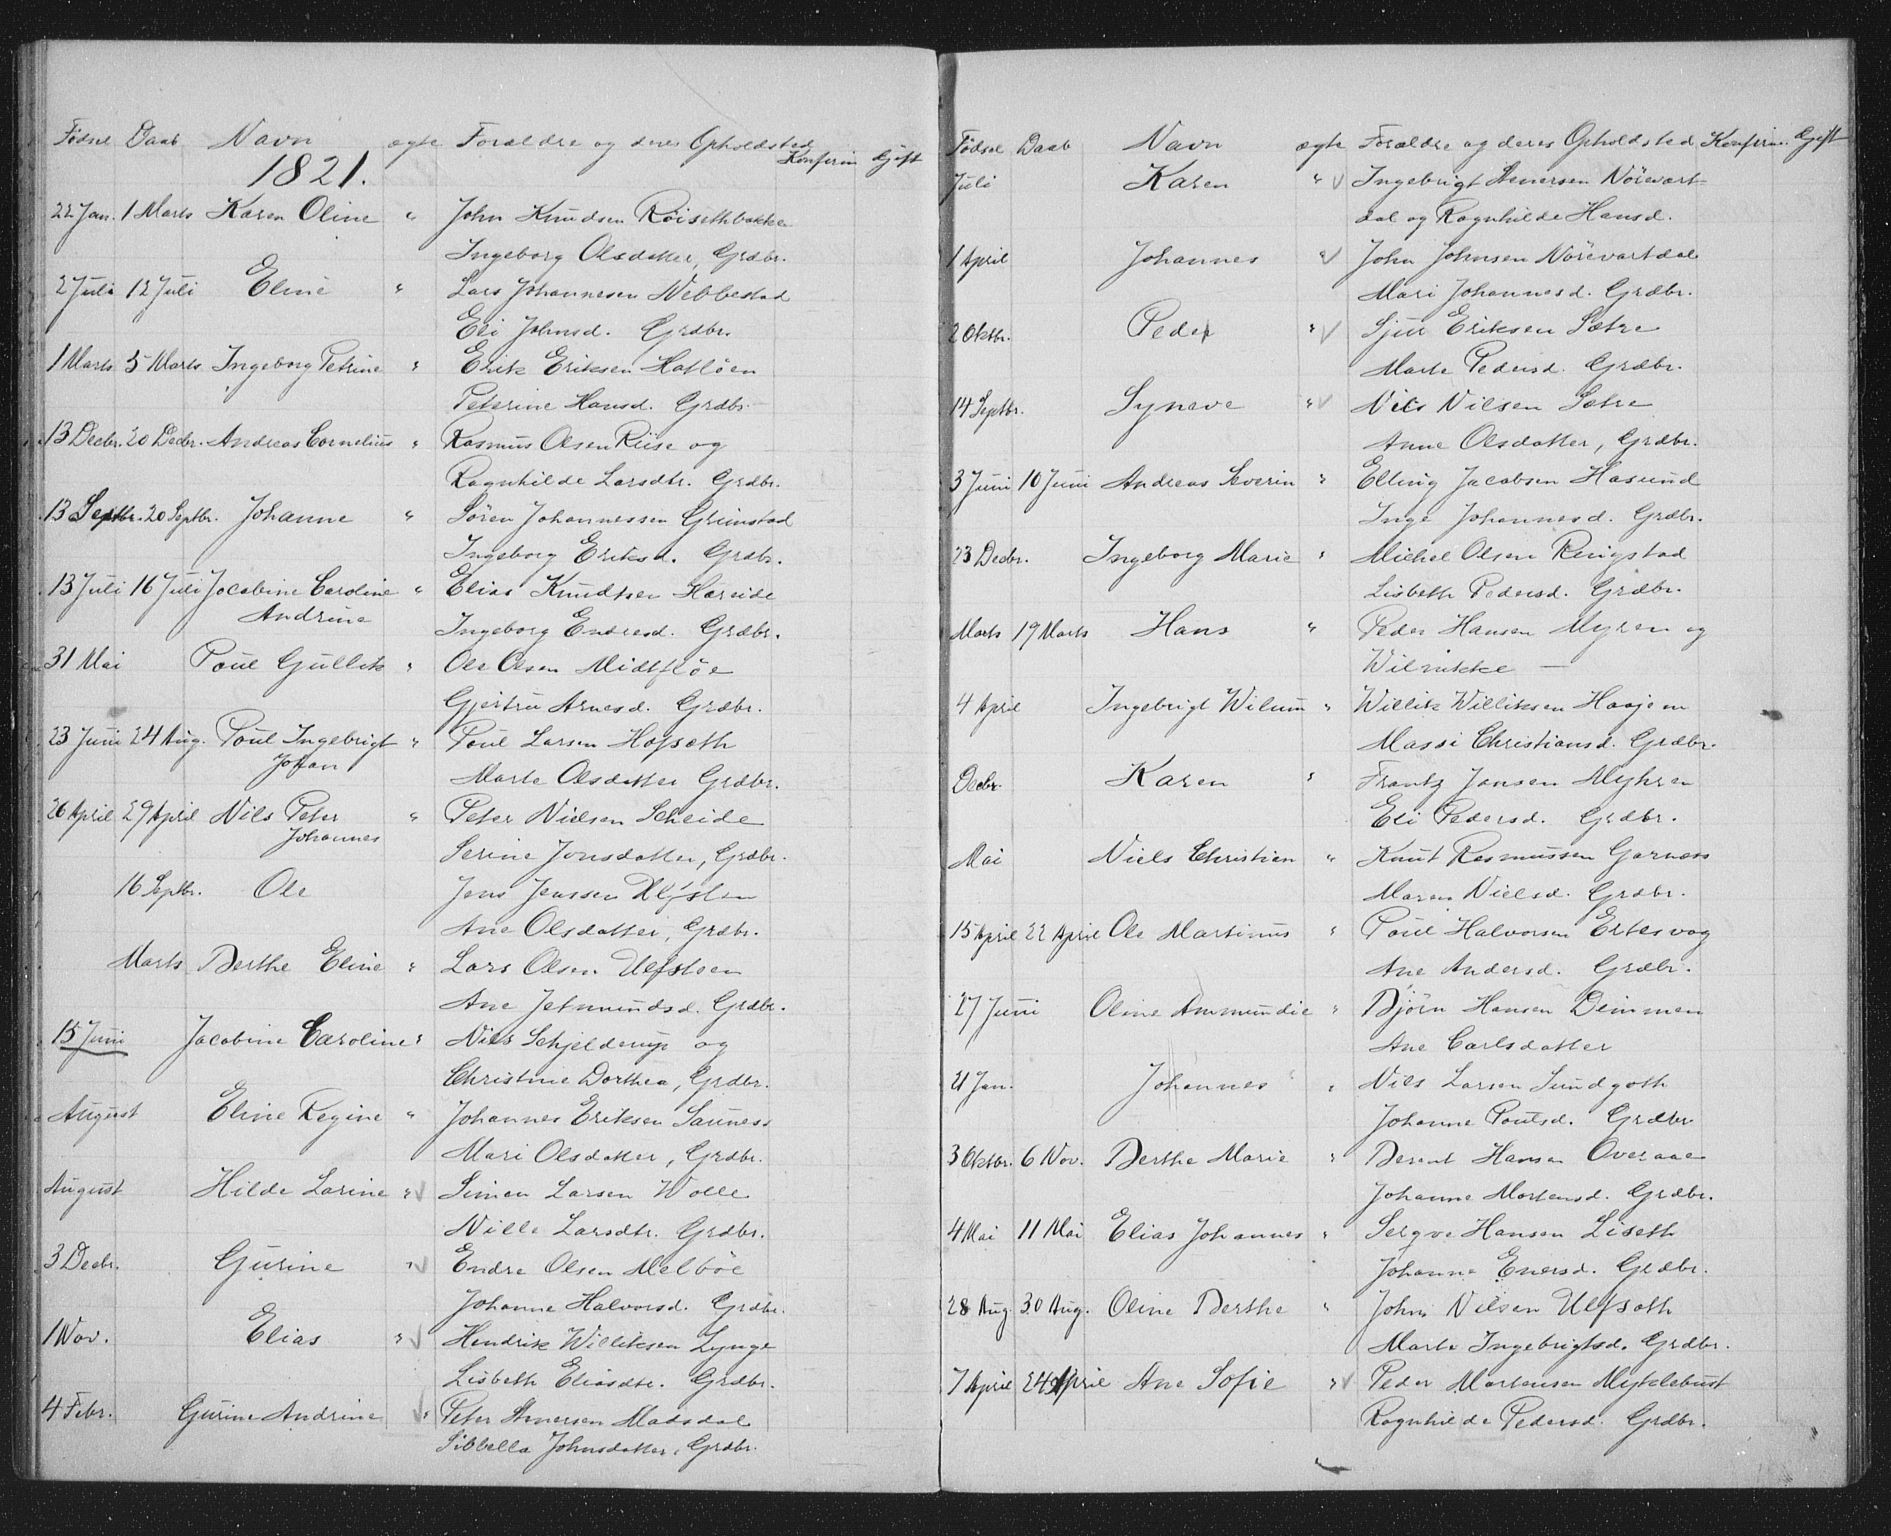 Fødsel Daab Navn ægte Forældre og deres Opholdsted Konferm Gjift
1821.
22 Jan. 1 Marts Karen Oline " John Knudsen Röisethbakke
Ingeborg Olsdatter, Grdbr.
2 Juli 12 Juli Eline " Lars Johannesen Nebbestad
Eli Johnsd. Grdbr.
1 Marts 5 Marts Ingeborg Petrine " Erik Eriksen Hatlöen
Peterine Hansd. Grdbr.
13 Decbr. 20 Decbr. Andreas Cornelius " Rasmus Olsen Riise og
Ragnhilde Larsdtr. Grdbr.
13 Septbr. 20 Septbr. Johanne " Sören Johannessen Grimstad
Ingeborg Eriksd. Grdbr.
13 Juli 16 Juli Jacobine Caroline " Elias Knudtsen Hareide
Andrine
Ingeborg Endresd. Grdbr.
31 Mai Poul Gullik " Ole Olsen Midtflöe
Gjertru Arnesd. Grdbr.
23 Juni 24 Aug. Poul Ingebrigt " Poul Larsen Hofseth
Johan
Marte Olsdatter Grdbr.
26 April 29 April Nils Peter " Peter Nielsen Scheide
Johannes
Serine Jonsdatter, Grdbr.
16 Septbr. Ole Jens Jenssen Ulfsten
Ane Olsdatter, Grdbr.
Marts Berthe Eline " Lars Olsen Ulfsteen
Ane Jetmundsd. Grdbr.
15 Juni Jacobine Caroline " Nils Schjelderup og
Christine Dorthea, Grdbr.
August Eline Regine " Johannes Eriksen Sauness
Mari Olsdatter, Grdbr.
August Hilde Larine " Simen Larsen Wolle
Nille Larsdtr. Grdbr.
3 Decbr. Gurine " Endre Olsen Melböe
Johanne Halvorsd. Grdbr.
1 Nov. Elias " Hendrik Williksen Lynge
Lisbeth Eliasdtr. Grdbr.
4 Febr. Gurine Andrine " Peter Arnersen Madsdal
Sibbella Johnsdatter, Grdbr.
Fødsel Daab Navn ægte Forældre og deres Opholdsted Konferm. Gjift
Juli Karen " Ingebrigt Arnersen Nörevart-
dal og Ragnhilde Hansd.
1 April Johannes " John Johnsen Nörevartdal
Mari Johannesd. Grdbr.
2 Oktbr. Peder " Sjur Eriksen Sætre
Marte Pedersd. Grdbr.
14 Septbr. Syneve " Nils Nilsen Sætre
Anne Olsdatter, Grdbr.
3 Juni 10 Juni Andreas Severin " Elling Jacobsen Hasund
Inge Johannesd. Grdbr.
23 Decbr. Ingeborg Marie " Michel Olsen Ringstad
Lisbeth Pedersd. Grdbr.
Marts 19 Marts Hans " Peder Hansen Myren og
Wilrikke —
4 April Ingebrigt Wilum " Willik Williksen Haajem
Massi Christiansd. Grdbr.
Decbr. Karen " Frantz Jansen Myhren
Eli Pedersd. Grdbr.
Mai Niels Christian " Knut Rasmussen Garness
Maren Nielsd. Grdbr.
15 April 22 April Ole Martinus " Poul Halvorsen Ertesvog
Ane Andersd. Grdbr.
27 Juni Oline Ammundie " Björn Hansen Dimmen
Ane Carlsdatter
21 Jan. Johannes " Nils Larsen Sundgoth
Johanne Poulsd. Grdbr.
3 Oktbr. 6 Nov. Berthe Marie " Berent Hansen Overaae
Johanne Mortensd. Grdbr.
4 Mai 11 Mai Elias Johannes " Sergve Hansen Liseth
Johanne Enersd. Grdbr.
28 Aug. 30 Aug. Oline Berthe " John Nilsen Ulfsoth
Marte Ingebrigtsd. Grdbr.
7 April 24 April Ane Sofie " Peder Mortensen Myklebust
Ragnhilde Pedersd. Grdbr.